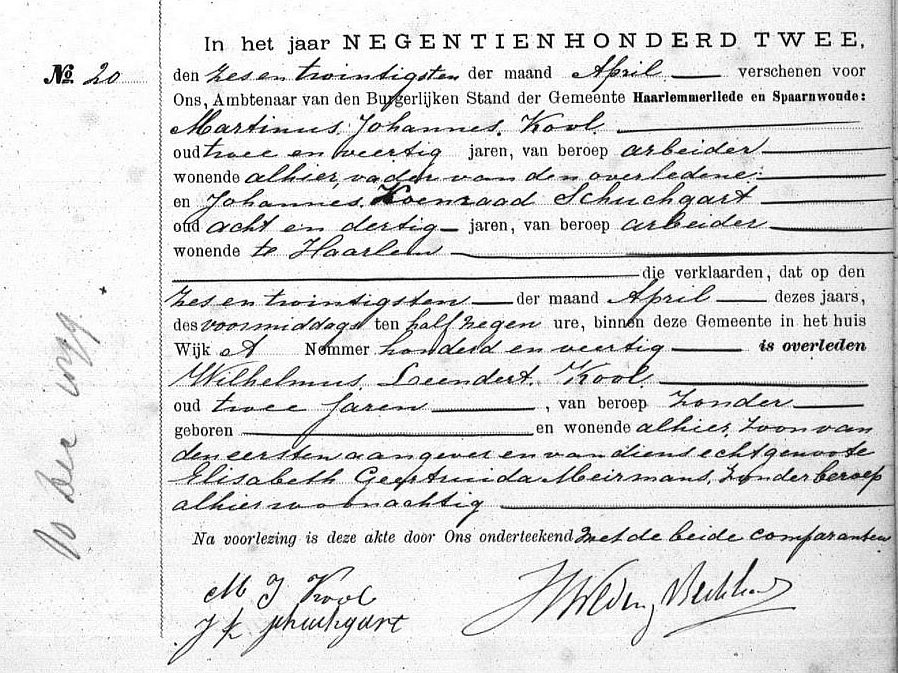 In het jaar NEGENTIENHONDERD TWEE,
No. 20
den zes en twintigsten der maand April verschenen voor
Ons, Ambtenaar van den Burgerlijken Stand der Gemeente Haarlemmerliede en Spaarnwoude:
Martinus Johannes Kool
oud twee en veertig jaren, van beroep arbeider
wonende alhier, vader van den overledene:
en Johannes Koenraad Schuchgart
oud acht en dertig jaren, van beroep arbeider
wonende te Haarlem
die verklaarden, dat op den
zes en twintigsten der maand April dezes jaars,
des voormiddags ten half negen ure, binnen deze Gemeente in het huis
Wijk A Nommer honderd en veertig is overleden
Wilhelmus Leendert Kool
oud twee jaren, van beroep zonder
geboren en wonende alhier, zoon van
den eersten aangever en van diens echtgenoote
Elisabeth Geertruida Meirmans, zonder beroep
alhier woonachtig
Na voorlezing is deze akte door Ons onderteekend met de beide comparanten
M J Kool
J K Schuchgart